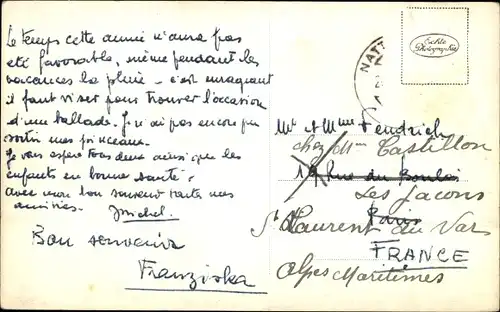 Le temps cette année n'aura pas
été favorable, même pendant les
vacances la pluie - c'est enrageant
il faut viser pour trouver l'occasion
d'une ballade. Je n'ai pas encore pu
sortir mes pinceaux.
Je vous espère tous deux ainsi que les
enfants en bonne santé:
avec mon bon souvenir toutes mes
amitiés.
Michel.
Bon souvenir
Franziska
Echte
Photographie
NATT
Mr et Mme Fendrich
chez Mme Castillon
19, Rue du Bouloi
Les Jacons
Paris
St Laurent du Var
FRANCE
Alpes Maritimes